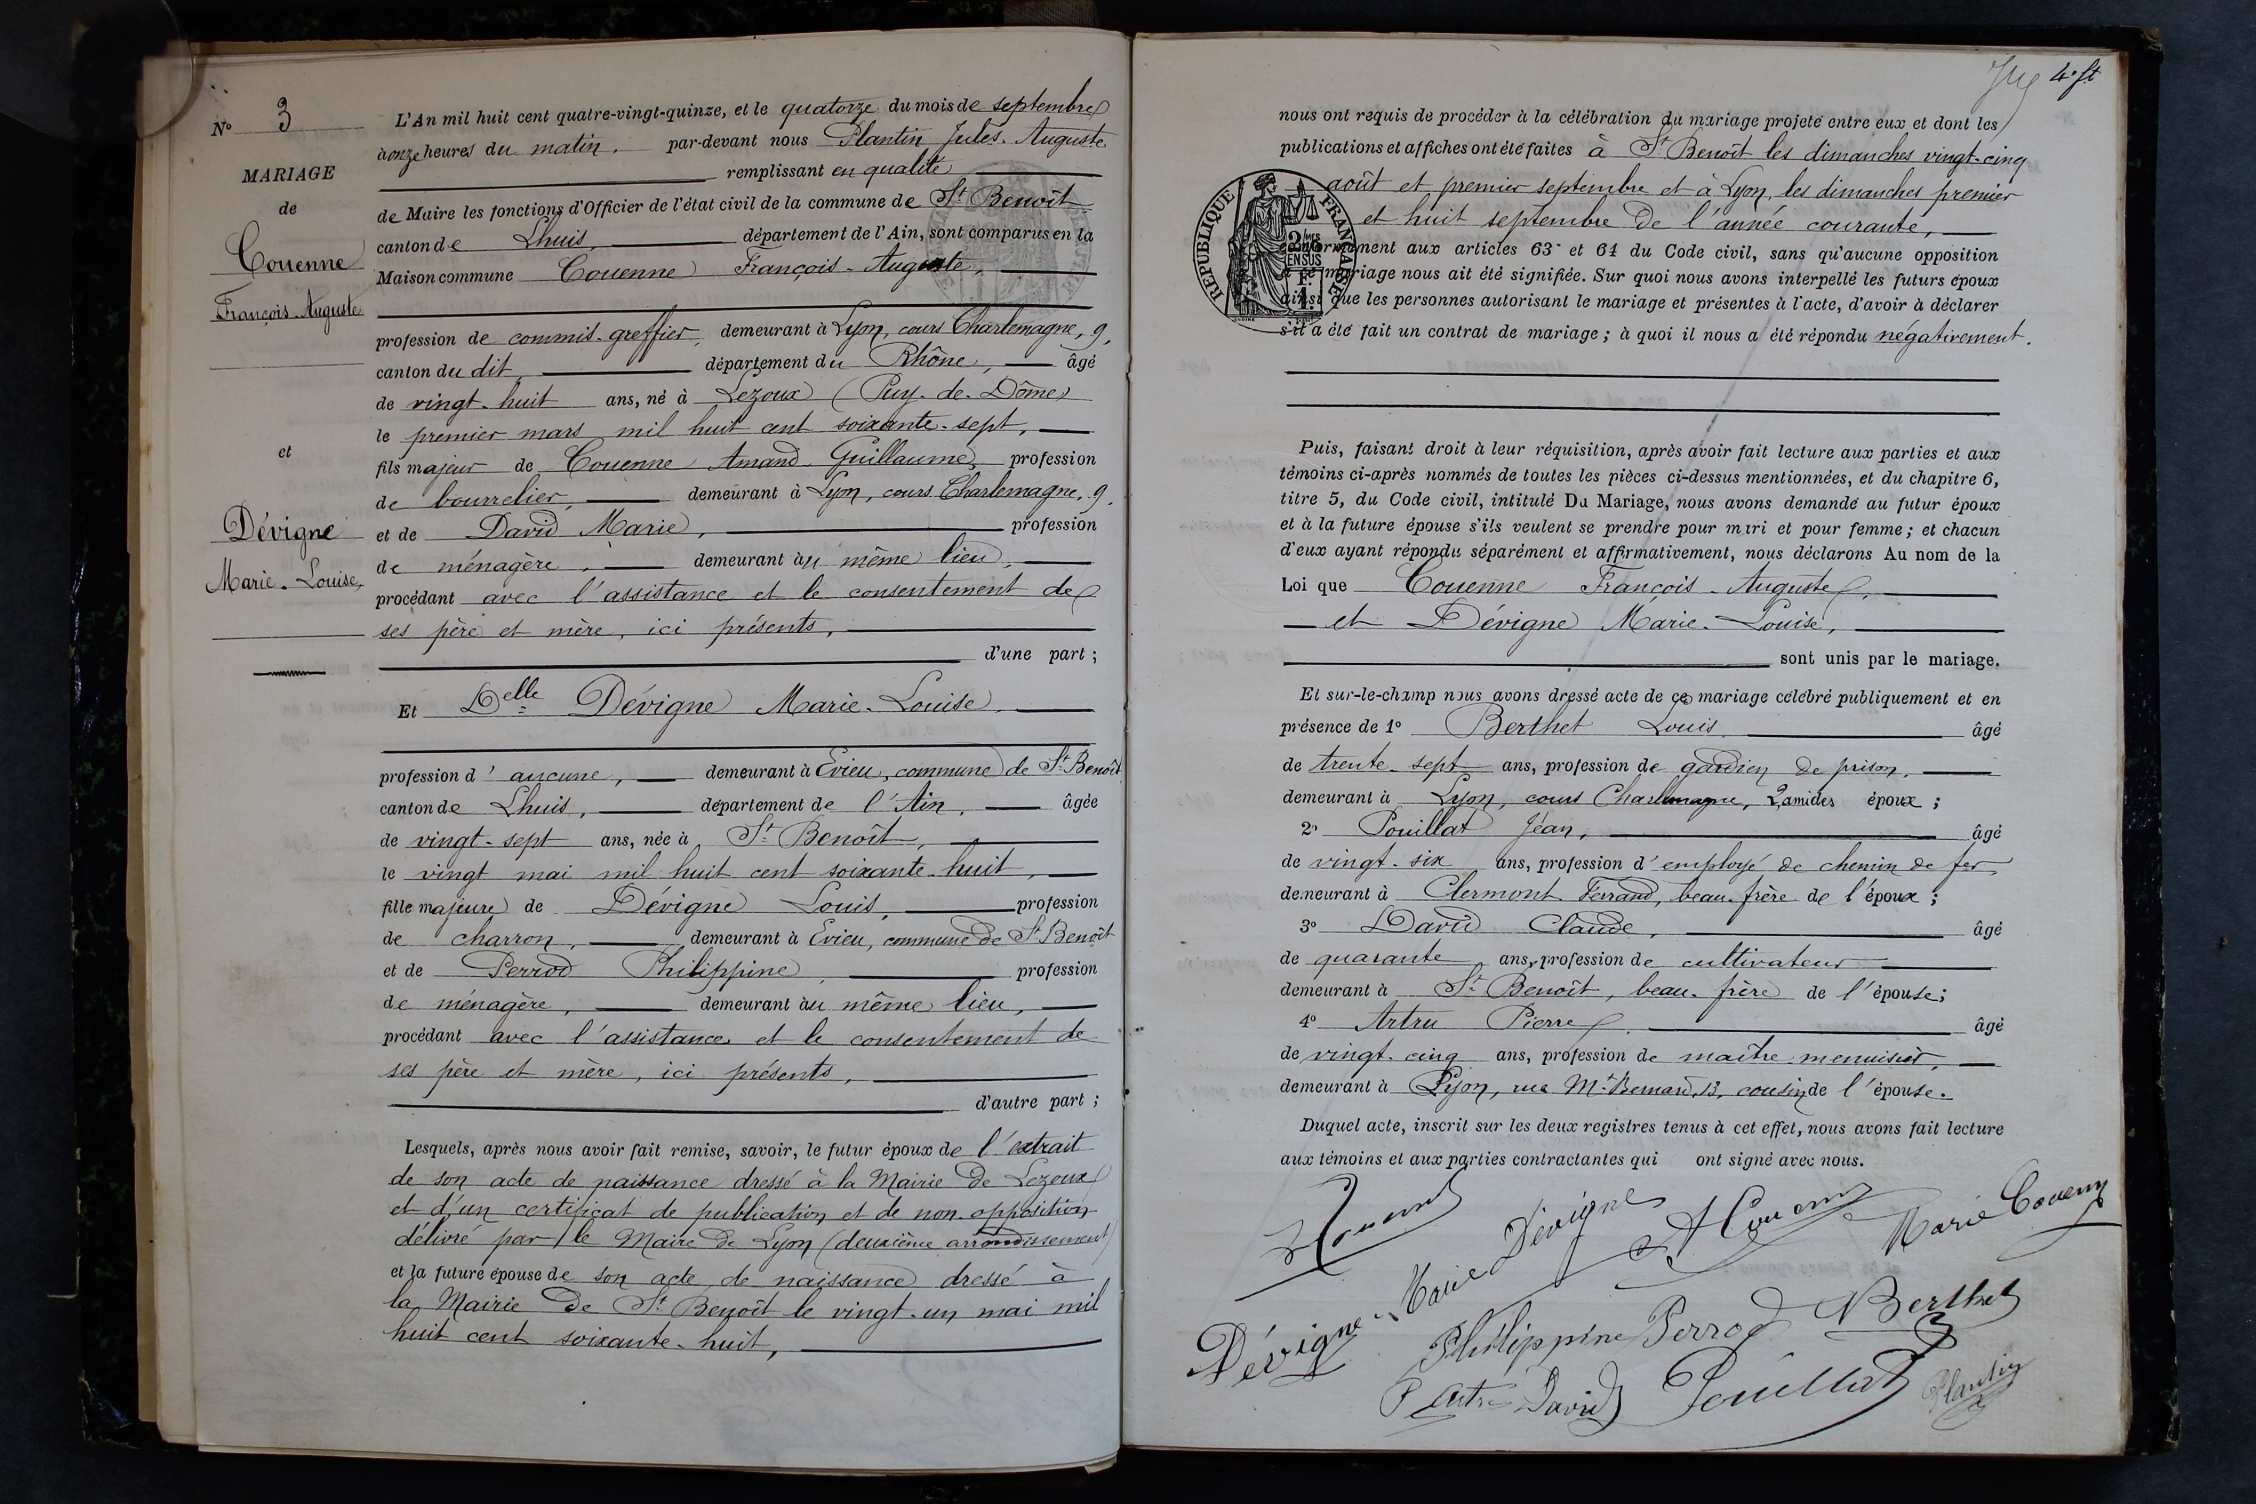 N° 3
MARIAGE
de
Couenne
François-Auguste
et
Dévigne
Marie-Louise,
L'An mil huit cent quatre-vingt-quinze, et le quatorze du mois de septembre
à onze heures du matin, par-devant nous Plantin Jules-Auguste
remplissant en qualité
de Maire les fonctions d'Officier de l'état civil de la commune de St Benoît
canton de Lhuis, département de l'Ain, sont comparus en la
Maison commune Couenne François-Auguste,
profession de commis-greffier, demeurant à Lyon, cours Charlemagne, 9,
canton du dit, département du Rhône, âgé
de vingt-huit ans, né à Lezoux (Puy-de-Dôme)
le premier mars mil huit cent soixante-sept,
fils majeur de Couenne Amand Guillaume, profession
de bourrelier, demeurant à Lyon, cours Charlemagne, 9,
et de David Marie, profession
de ménagère, demeurant au même lieu,
procédant avec l'assistance et le consentement de
ses père et mère, ici présents,
d'une part;
Et Delle Dévigne Marie-Louise,
profession d'aucune, demeurant à Evieu, commune de St Benoît
canton de Lhuis, département de l'Ain, âgée
de vingt-sept ans, née à St Benoît,
le vingt mai mil huit cent soixante-huit,
fille majeure de Dévigne Louis, profession
de charron, demeurant à Evieu, commune de St Benoît
et de Perrod Philippine, profession
de ménagère, demeurant au même lieu,
procédant avec l'assistance et le consentement de
ses père et mère, ici présents,
d'autre part;
Lesquels, après nous avoir fait remise, savoir, le futur époux de l'extrait
de son acte de naissance dressé à la Mairie de Lezoux
et d'un certificat de publication et de non-opposition
délivré par le Maire de Lyon (deuxième arrondissement)
et la future épouse de son acte de naissance dressé à
la Mairie de St Benoît le vingt-un mai mil
huit cent soixante-huit,
4. ft
nous ont requis de procéder à la célébration du mariage projeté entre eux et dont les
publications et affiches ont été faites à St Benoît les dimanches vingt-cinq
août et premier septembre et à Lyon, les dimanches premier
et huit septembre de l'année courante,
conformément aux articles 63 et 64 du Code civil, sans qu'aucune opposition
à ce mariage nous ait été signifiée. Sur quoi nous avons interpellé les futurs époux
ainsi que les personnes autorisant le mariage et présentes à l'acte, d'avoir à déclarer
s'il a été fait un contrat de mariage; à quoi il nous a été répondu négativement.
RÉPUBLIQUE FRANÇAISE
Puis, faisant droit à leur réquisition, après avoir fait lecture aux parties et aux
témoins ci-après nommés de toutes les pièces ci-dessus mentionnées, et du chapitre 6,
titre 5, du Code civil, intitulé Du Mariage, nous avons demandé au futur époux
et à la future épouse s'ils veulent se prendre pour mari et pour femme; et chacun
d'eux ayant répondu séparément et affirmativement, nous déclarons Au nom de la
Loi que Couenne François-Auguste,
et Dévigne Marie-Louise,
sont unis par le mariage.
Et sur-le-champ nous avons dressé acte de ce mariage célébré publiquement et en
présence de 1° Berthet Louis âgé
de trente-sept ans, profession de gardien de prison,
demeurant à Lyon, cours Charlemagne, 2, ami des époux;
2° Pouillat Jean, âgé
de vingt-six ans, profession d'employé de chemin de fer
demeurant à Clermont-Ferrand, beau-frère de l'époux;
3° David Claude, âgé
de quarante ans, profession de cultivateur
demeurant à St Benoît, beau-frère de l'épouse;
4° Artru Pierre, âgé
de vingt-cinq ans, profession de maître menuisier,
demeurant à Lyon, rue Mt Bernard, 13, cousin de l'épouse.
Duquel acte, inscrit sur les deux registres tenus à cet effet, nous avons fait lecture
aux témoins et aux parties contractantes qui ont signé avec nous.
Couenne
Marie Dévigne
A Couenne
Marie Couenne
Dévigne
Philippine Perrod
Berthet
P Artru
David
Pouillat
Plantin